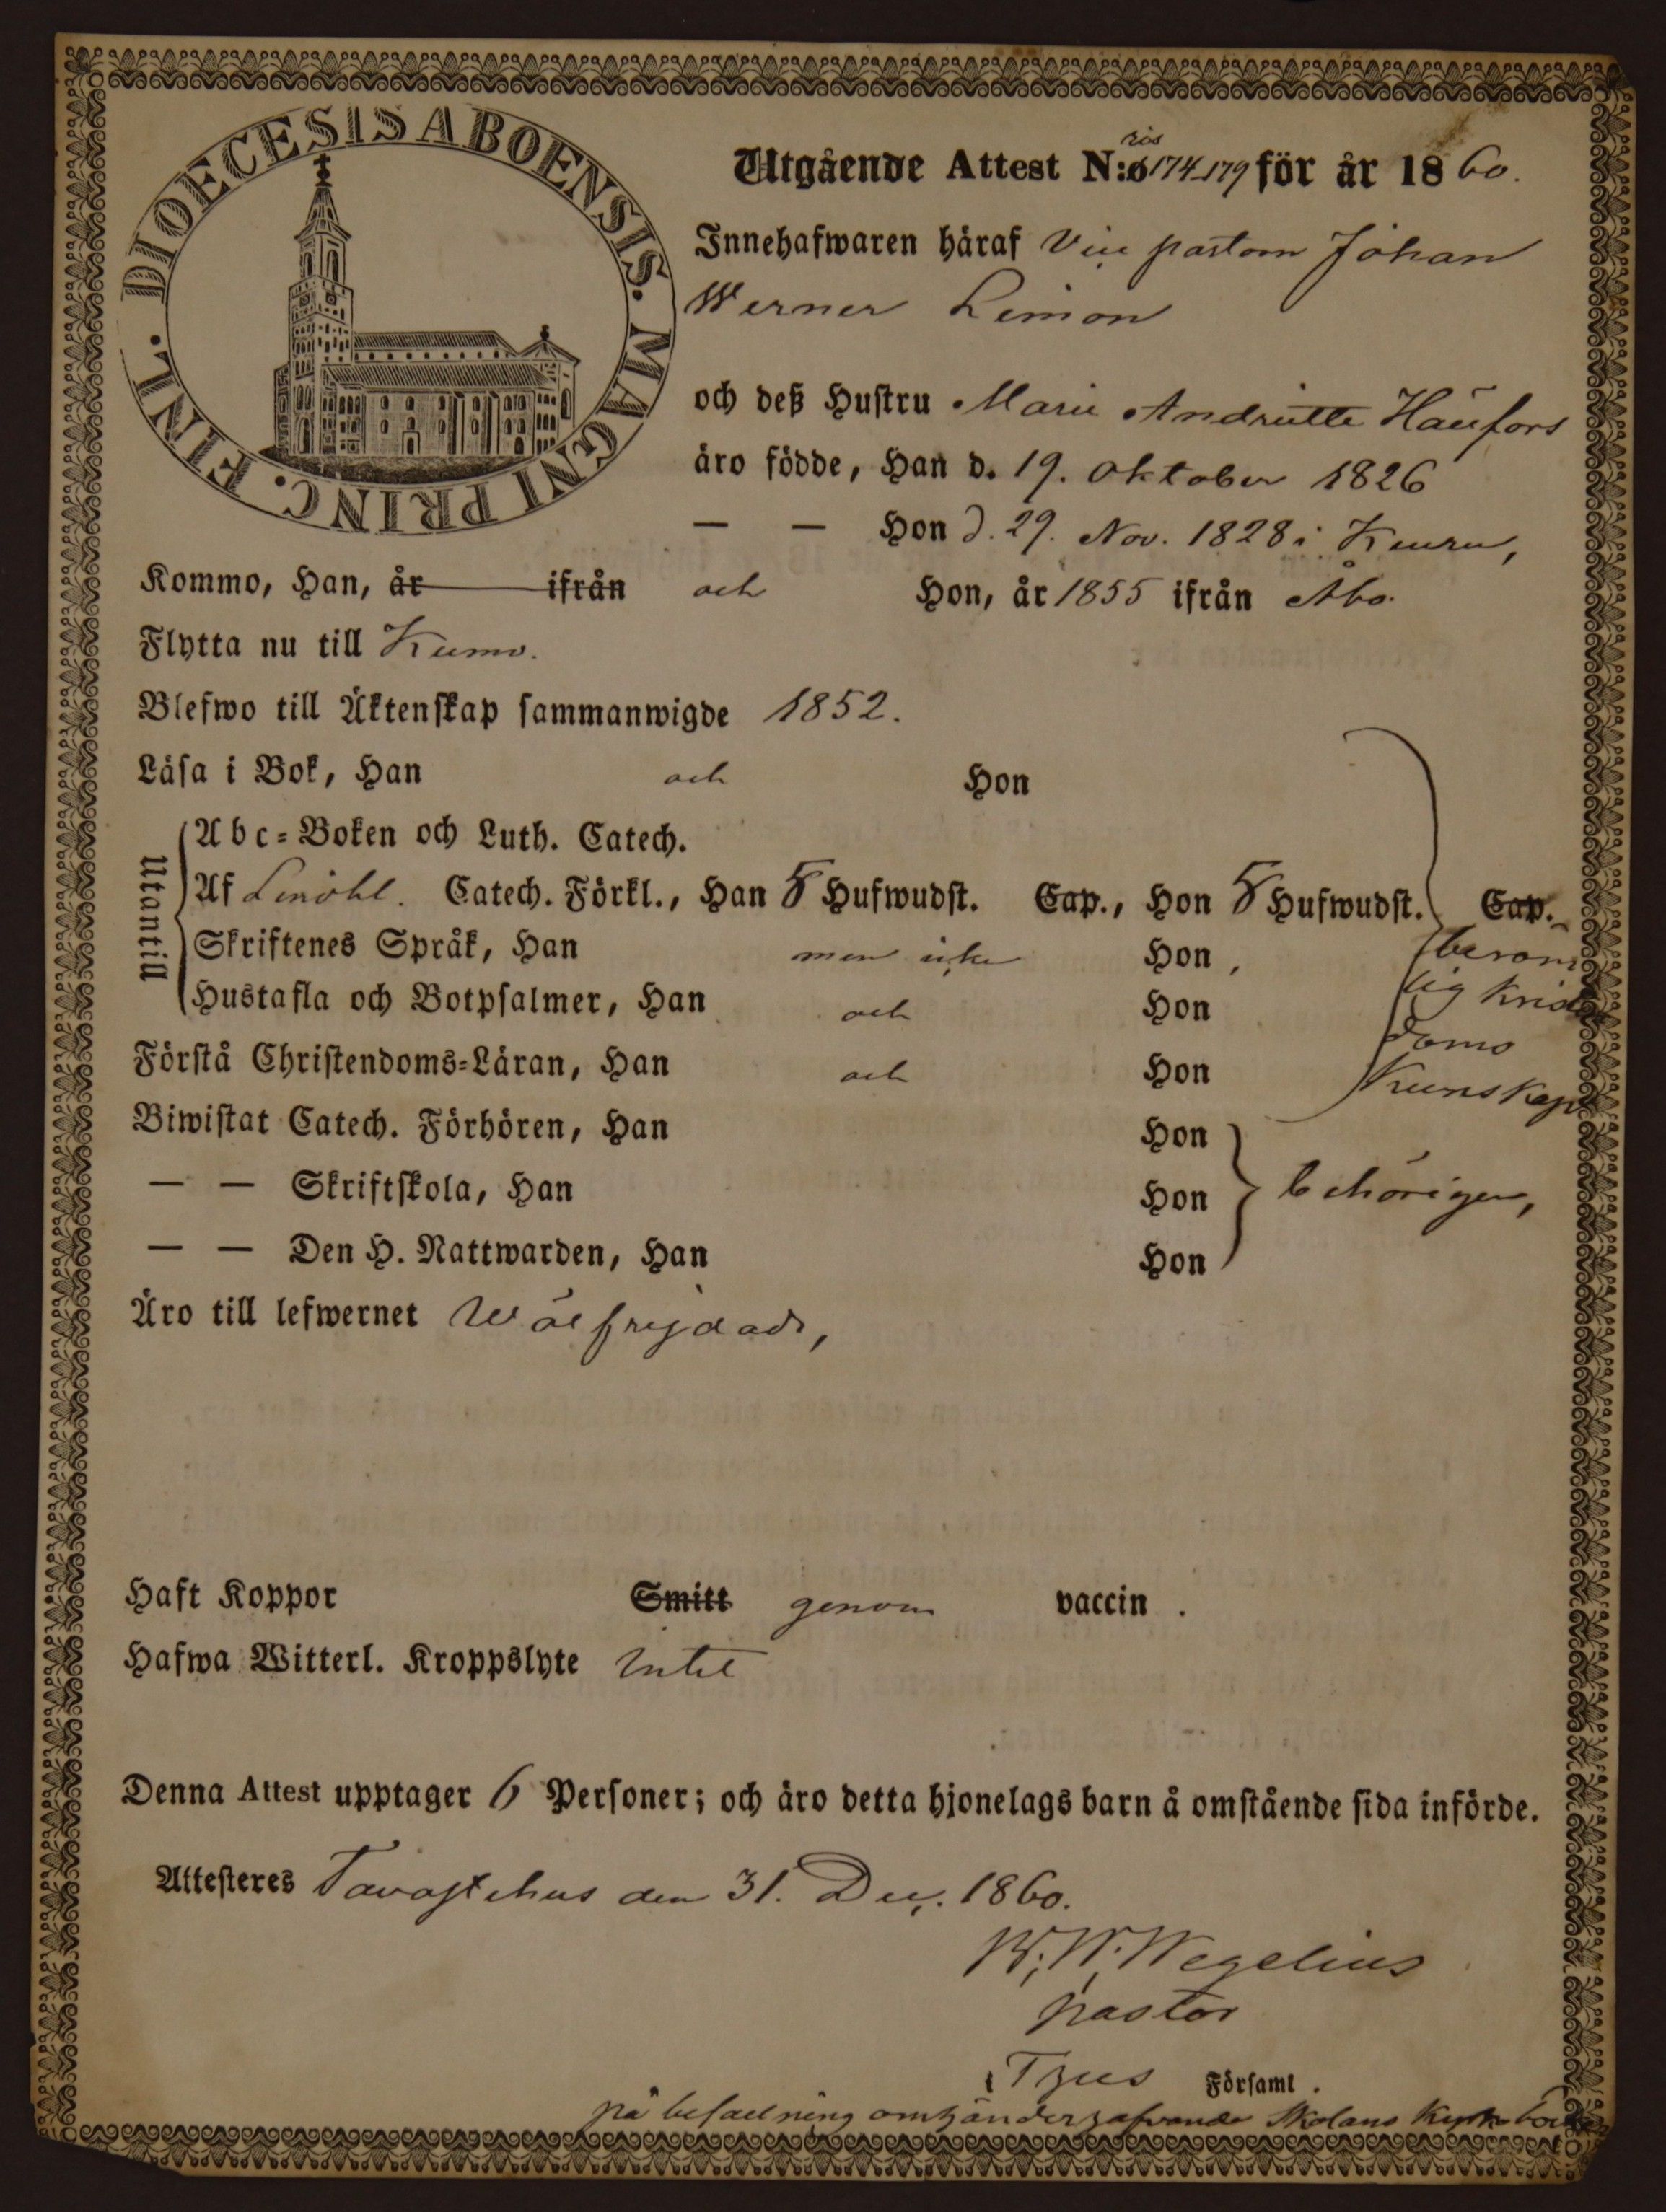 DIOECESIS ABOENSIS. MAGNI PRINC. FINL.
Utgående Attest N:o ris 174-179 för år 1860.
Innehafwaren häraf Vice pastorn Johan
Werner Limon
och deß Hustru Marie Andriette Häufors
äro födde, Han d. 19. Oktober 1826
— — Hon d. 29. Nov. 1828 i Kuuru,
Kommo, Han, år ifrån och Hon, år 1855 ifrån Åbo.
Flytta nu till Kumo.
Blefwo till Äktenskap sammanwigde 1852.
Läsa i Bok, Han och Hon
Utantill
Abc-Boken och Luth. Catech.
Af Catech. Förkl., Han 5 Hufwudst. Cap., Hon 5 Hufwudst. Cap.
Skriftenes Språk, Han men icke Hon,
Hustafla och Botpsalmer, Han och Hon
Förstå Christendoms-Läran, Han och Hon
beröm
lig Krist
doms
Kunskap
Biwistat Catech. Förhören, Han Hon
— — Skriftskola, Han Hon behörigen,
— — Den H. Nattwarden, Han Hon
Äro till lefwernet Wälfrejdade,
Haft Koppor Smitt genom vaccin.
Hafwa Witterl. Kroppslyte Intet
Denna Attest upptager 6 Personer; och äro detta hjonelags barn å omstående sida införde.
Attesteres Tavastehus den 31. Dec. 1860.
W. W. Wegelius
pastor
i Församl.
på befallning Skolans Kyrko